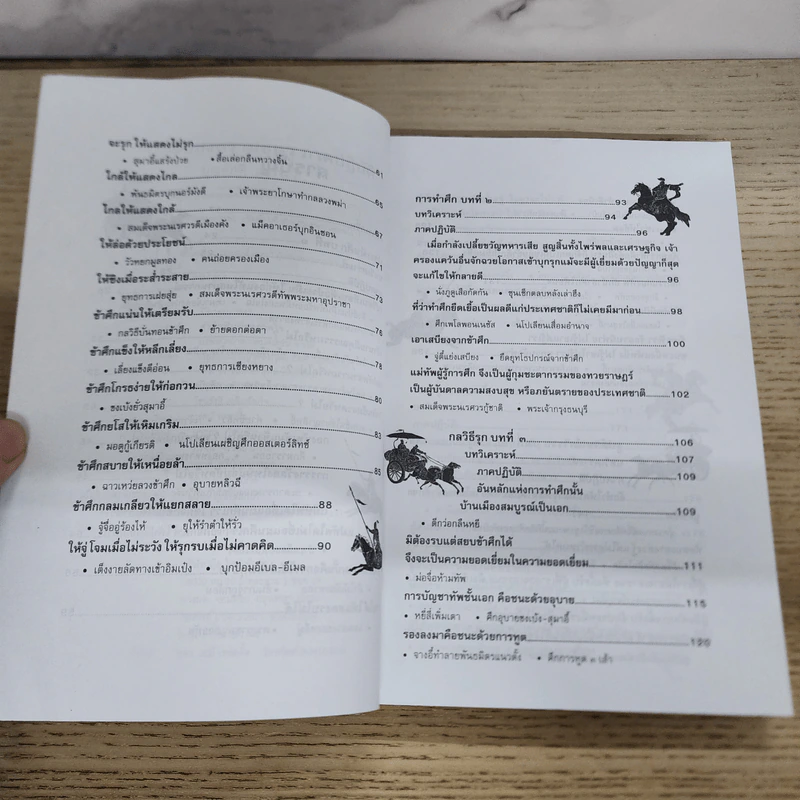 จะรุก ให้แสดงไม่รุก 61
• สุมาอี้แสร้งป่วย • สื่อเล่อกลืนหวางจิ้น
ใกล้ให้แสดงไกล 65
• พันธมิตรบุกนอร์มังดี • เจ้าพระยาโกษาทำกลลวงพม่า
ไกลให้แสดงใกล้ 67
• สมเด็จพระนเรศวรตีเมืองคัง • แม็คอาเธอร์บุกอินชอน
ให้ล่อด้วยประโยชน์ 71
• วัวหยกมูลทอง • คนถ่อยครองเมือง
ให้ชิงเมื่อระส่ำระสาย 73
• ยุทธการเฝยสุ่ย • สมเด็จพระนเรศวรตีทัพพระมหาอุปราชา
ข้าศึกแน่นให้เตรียมรับ 76
• กลวิธีบั่นทอนข้าศึก • ย้ายดอกต่อตา
ข้าศึกแข็งให้หลีกเลี่ยง 78
• เลี่ยงแข็งตีอ่อน • ยุทธการเซียงหยาง
ข้าศึกโกรธง่ายให้ก่อกวน 80
• ขงเบ้งยั่วสุมาอี้
ข้าศึกยโสให้เหิมเกริม 83
• มอตูกู้เกียรติ • นโปเลียนเผชิญศึกออสเตอร์ลิทซ์
ข้าศึกสบายให้เหนื่อยล้า 85
• ฉาวเหว่ยลวงข้าศึก • อุบายหลิวฉี
ข้าศึกกลมเกลียวให้แยกสลาย 88
• จู้จื่ออู่ร้องไห้ • ยุให้รำตำให้รั่ว
ให้จู่ โจมเมื่อไม่ระวัง ให้รุกรบเมื่อไม่คาดคิด 90
• เติ้งงายลัดทางเข้าอิมเป๋ง • บุกป้อมอีเบล-อีเมล
การทำศึก บทที่ ๒ 93
บทวิเคราะห์ 94
ภาคปฏิบัติ 96
เมื่อกำลังเปลี้ยขวัญทหารเสีย สูญสิ้นทั้งไพร่พลและเศรษฐกิจ เจ้า
ครองแคว้นอื่นจักฉวยโอกาสเข้าบุกรุกแม้จะมีผู้เยี่ยมด้วยปัญญาก็สุด
จะแก้ไขให้กลายดี 96
• นั่งภูดูเสือกัดกัน • ซุนเซ็กตลบหลังเล่าฮึง
ที่ว่าทำศึกยืดเยื้อเป็นผลดีแก่ประเทศชาติก็ไม่เคยมีมาก่อน 98
• ศึกเพโลพอนเนซัส • นโปเลียนเสื่อมอำนาจ
เอาเสบียงจากข้าศึก 100
• จู่ตี้แย่งเสบียง • ยึดยุทโธปกรณ์จากข้าศึก
แม่ทัพผู้รู้การศึก จึงเป็นผู้กุมชะตากรรมของทวยราษฎร์
เป็นผู้บันดาลความสงบสุข หรือภยันตรายของประเทศชาติ 102
• สมเด็จพระนเรศวรกู้ชาติ • พระเจ้ากรุงธนบุรี
กลวิธีรุก บทที่ ๓ 106
บทวิเคราะห์ 107
ภาคปฏิบัติ 109
อันหลักแห่งการทำศึกนั้น
บ้านเมืองสมบูรณ์เป็นเอก 109
• ตีกว่อกลืนหยี
มิต้องรบแต่สยบข้าศึกได้
จึงจะเป็นความยอดเยี่ยมในความยอดเยี่ยม 111
• ม่อจื๊อห้ามทัพ
การบัญชาทัพชั้นเอก คือชนะด้วยอุบาย 115
• หยี่สี่เพิ่มเตา • ศึกอุบายขงเบ้ง-สุมาอี้
รองลงมาคือชนะด้วยการทูต 125
• จางอี้ทำลายพันธมิตรแนวตั้ง • ศึกการทูต ๓ เส้า